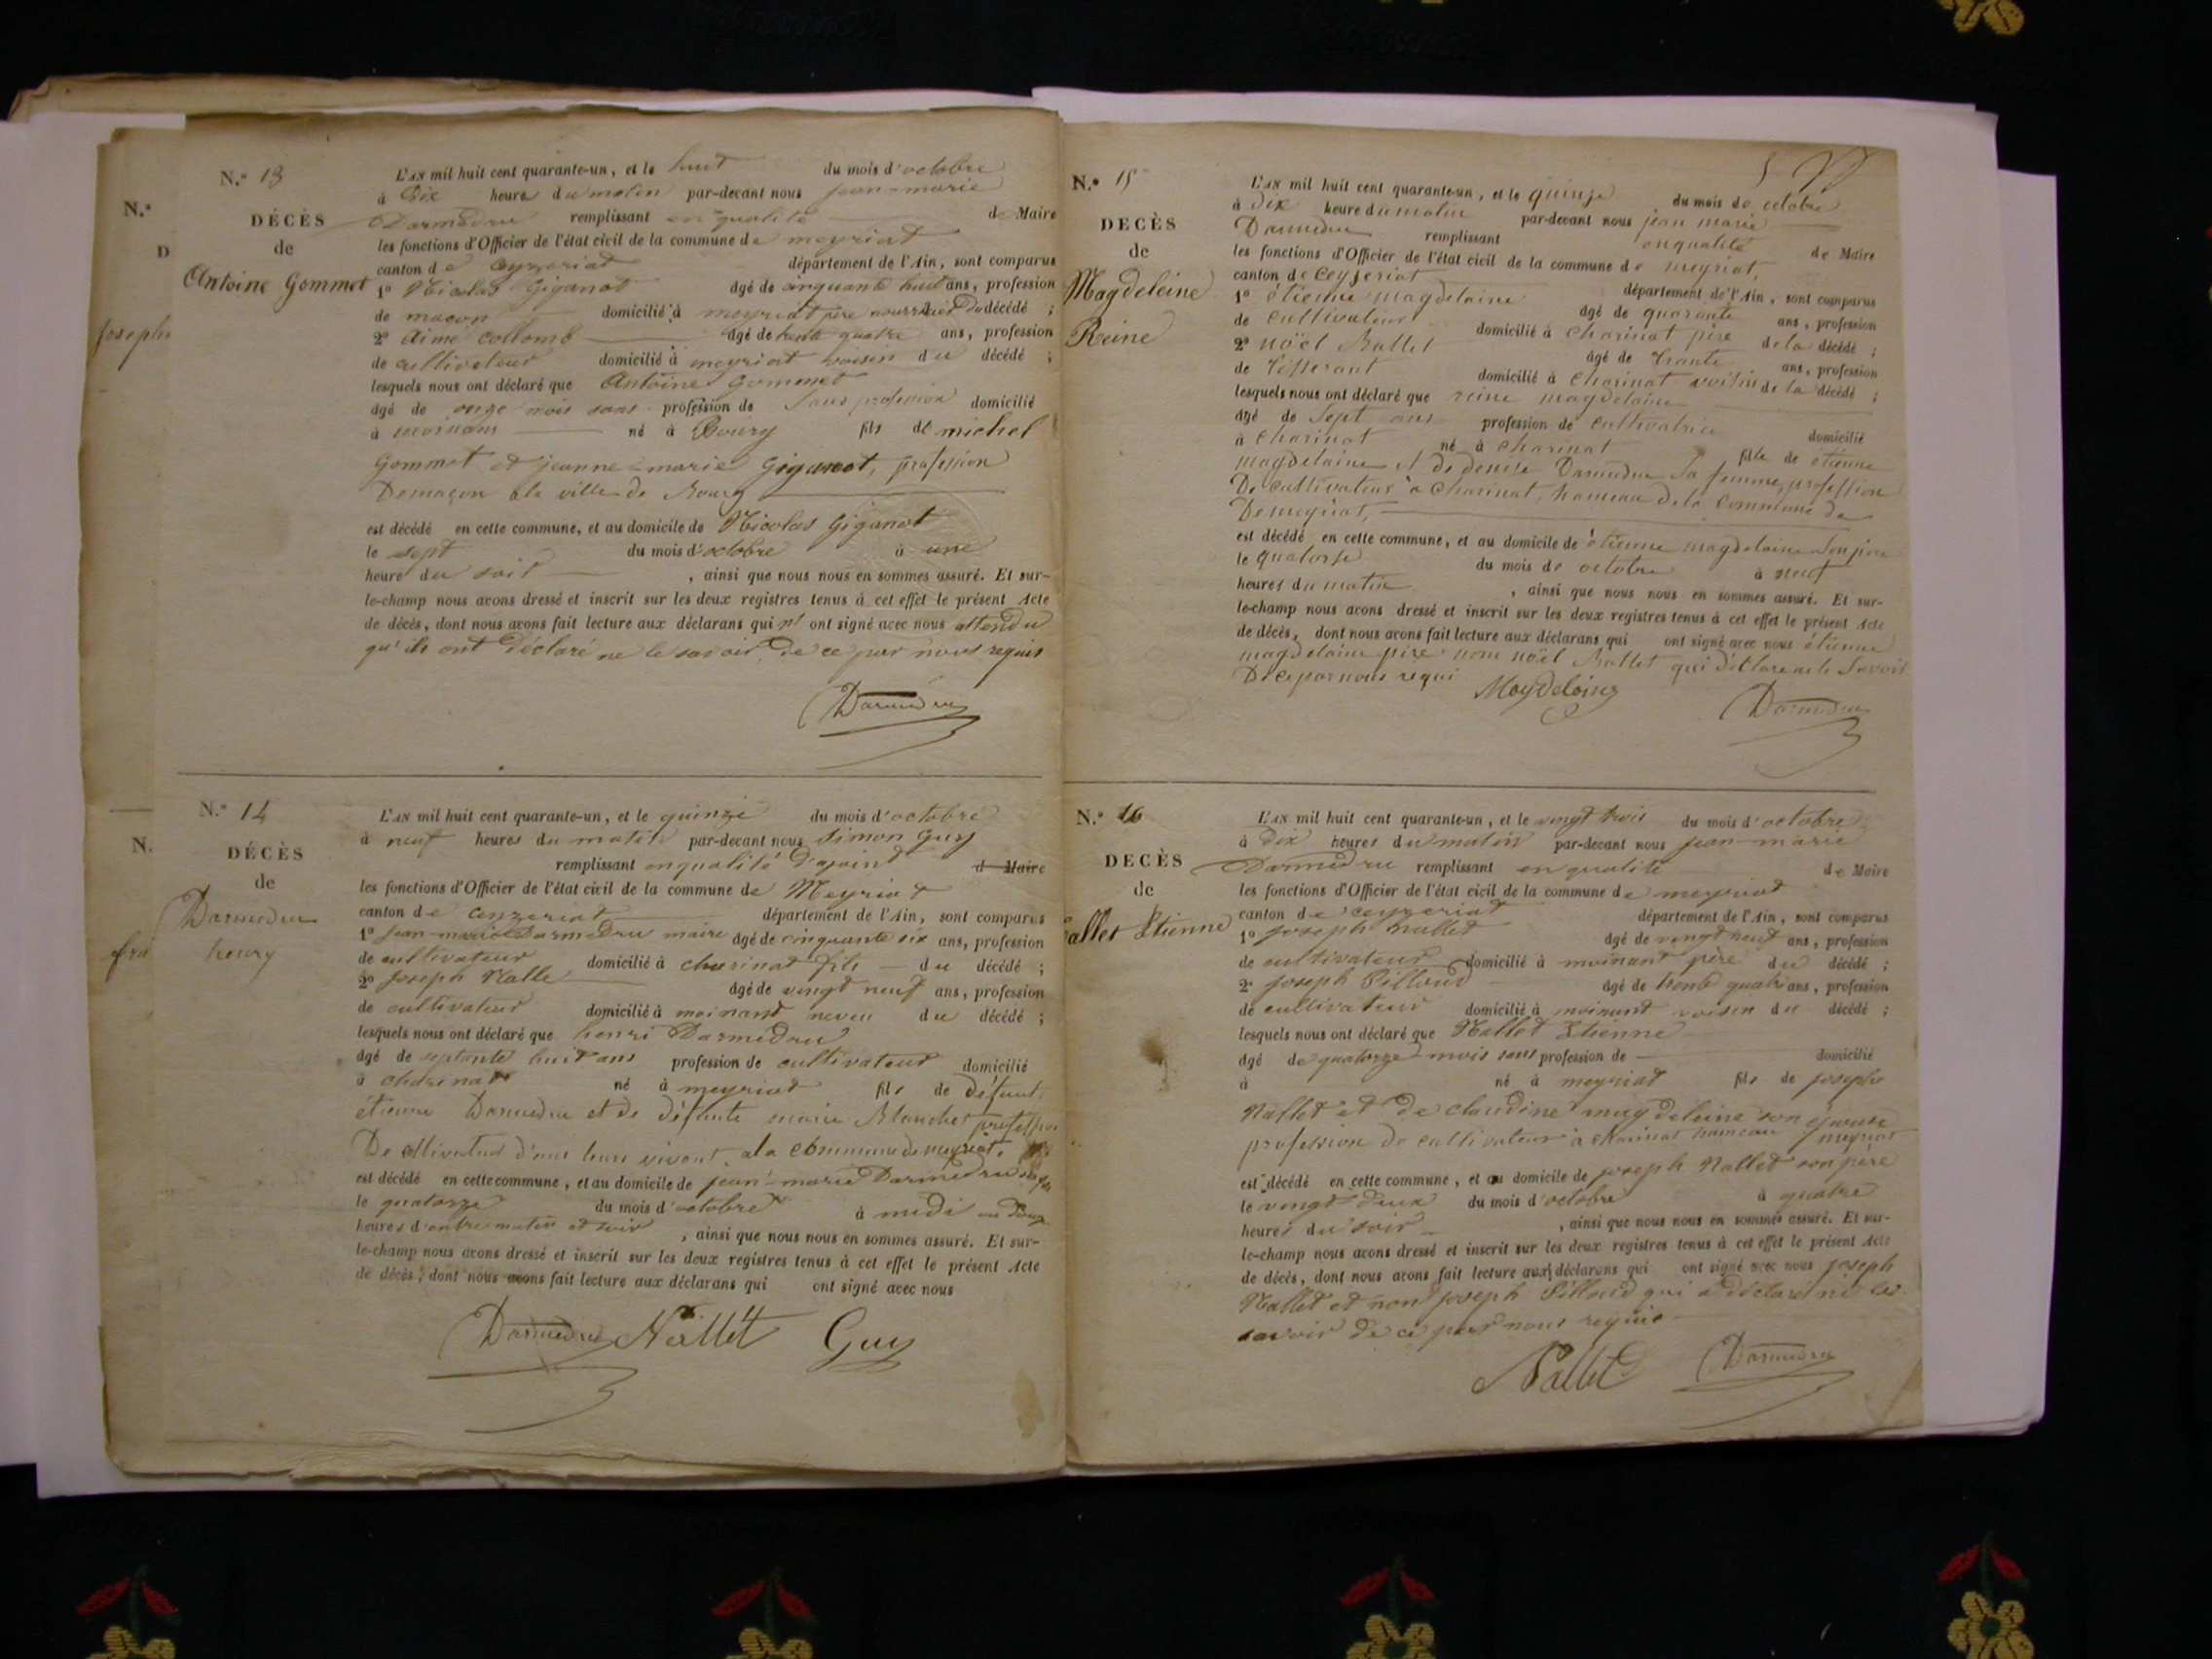 N.
D
Joseph
N.
N.° 13
DÉCÈS
de
Antoine Gommet
L'AN mil huit cent quarante-un, et le huit du mois d'octobre
à Dix heures du matin par-devant nous jean-marie
Darmedru remplissant en qualité de Maire
les fonctions d'Officier de l'état civil de la commune de meyriat
canton de ceyzeriat département de l'Ain, sont comparus
1° Nicolas Giganot âgé de cinquante huit ans, profession
de maçon domicilié à meyriat père nourricier Du décédé ;
2° Aimé collomb âgé de trente quatre ans, profession
de cultivateur domicilié à meyriat voisin du décédé ;
lesquels nous ont déclaré que Antoine Gommet
âgé de onze mois sans profession de Sans profession domicilié
à né à Bourg fils de michel
Gommet et jeanne-marie Giganot, profession
De maçon a la ville de Bourg
est décédé en cette commune, et au domicile de Nicolas Giganot
le sept du mois d'octobre à une
heure du soir , ainsi que nous nous en sommes assuré. Et sur-
le-champ nous avons dressé et inscrit sur les deux registres tenus à cet effet le présent Acte
de décès, dont nous avons fait lecture aux déclarans qui n' ont signé avec nous attendu
qu'ils ont Déclaré ne le savoir, de ce par nous requis
Darmedru
N.° 14
DÉCÈS
de
Darmedru
henry
L'AN mil huit cent quarante-un, et le quinze du mois d'octobre
à neuf heures du matin par-devant nous Simon Guy
remplissant en qualité D'ajoint d Maire
les fonctions d'Officier de l'état civil de la commune de Meyriat
canton de ceyzeriat département de l'Ain, sont comparus
1° Jean-marie Darmedru maire âgé de cinquante six ans, profession
de cultivateur domicilié à charinat fils du décédé ;
2° Joseph Nalle âgé de vingt neuf ans, profession
de cultivateur domicilié à moinant neveu du décédé ;
lesquels nous ont déclaré que henri Darmedru
âgé de septante huit ans profession de cultivateur domicilié
à charinat né à meyriat fils de Défunt
étienne Darmedru et de Défunte marie Blanchet
De cultivateur leur vivant, a la commune de meyriat,
est décédé en cette commune, et au domicile de jean-marie Darmedru
le quatorze du mois d'octobre à midi ou Douze
heures d'entre matin et soir , ainsi que nous nous en sommes assuré. Et sur-
le-champ nous avons dressé et inscrit sur les deux registres tenus à cet effet le présent Acte
de décès, dont nous avons fait lecture aux déclarans qui ont signé avec nous
Darmedru Nallet Guy
N.° 15
DECÈS
de
Magdeleine
Reine
L'AN mil huit cent quarante-un, et le quinze du mois de octobre
à Dix heure du matin par-devant nous jean marie
Darmedru remplissant en qualité de Maire
les fonctions d'Officier de l'état civil de la commune de meyriat,
canton de Ceyzeriat département de l'Ain, sont comparus
1° étienne magdelaine âgé de quarante ans, profession
de cultivateur domicilié à charinat père de la décédé ;
2° noël Nallet âgé de trante ans, profession
de Tisserant domicilié à charinat voisin de la décédé ;
lesquels nous ont déclaré que reine magdelaine
âgé de Sept ans profession de cultivatrice domicilié
à charinat né à charinat fille de étienne
magdelaine et de denise Darmedru Sa femme, profession
De cultivateur a charinat, hameau de la commune de
De meyriat,
est décédé en cette commune, et au domicile de étienne magdelaine Son père
le quatorse du mois de octobre à neuf
heures du matin , ainsi que nous nous en sommes assuré. Et sur-
le-champ nous avons dressé et inscrit sur les deux registres tenus à cet effet le présent Acte
de décès, dont nous avons fait lecture aux déclarans qui ont signé avec nous étienne
magdelaine père non noël Nallet qui déclare ne le Savoir
De ce par nous requi
Magdeleine Darmedru
N.° 16
DECÈS
de
allet Etienne
L'AN mil huit cent quarante-un, et le vingt trois du mois d'octobre
à Dix heures du matin par-devant nous jean-marie
Darmedru remplissant en qualité de Maire
les fonctions d'Officier de l'état civil de la commune de meyriat
canton de ceyzeriat département de l'Ain, sont comparus
1° Joseph Nallet âgé de vingt neuf ans, profession
de cultivateur domicilié à moinant père du décédé ;
2° Joseph Pilloud âgé de trente quatre ans, profession
de cultivateur domicilié à moinant voisin du décédé ;
lesquels nous ont déclaré que Nallet Etienne
âgé de quatorze mois sans profession de domicilié
à né à meyriat fils de joseph
Nallet et de claudine magdeleine son épouse
profession de cultivateur a charinat hameau meyriat
est décédé en cette commune, et au domicile de joseph Nallet son père
le vingt Deux du mois d'octobre à quatre
heures du soir , ainsi que nous nous en sommes assuré. Et sur-
le-champ nous avons dressé et inscrit sur les deux registres tenus à cet effet le présent Acte
de décès, dont nous avons fait lecture aux déclarans qui ont signé avec nous joseph
Nallet et non joseph Pilloud qui a déclaré ne les
savoir de ce par nous requis
Nallet Darmedru